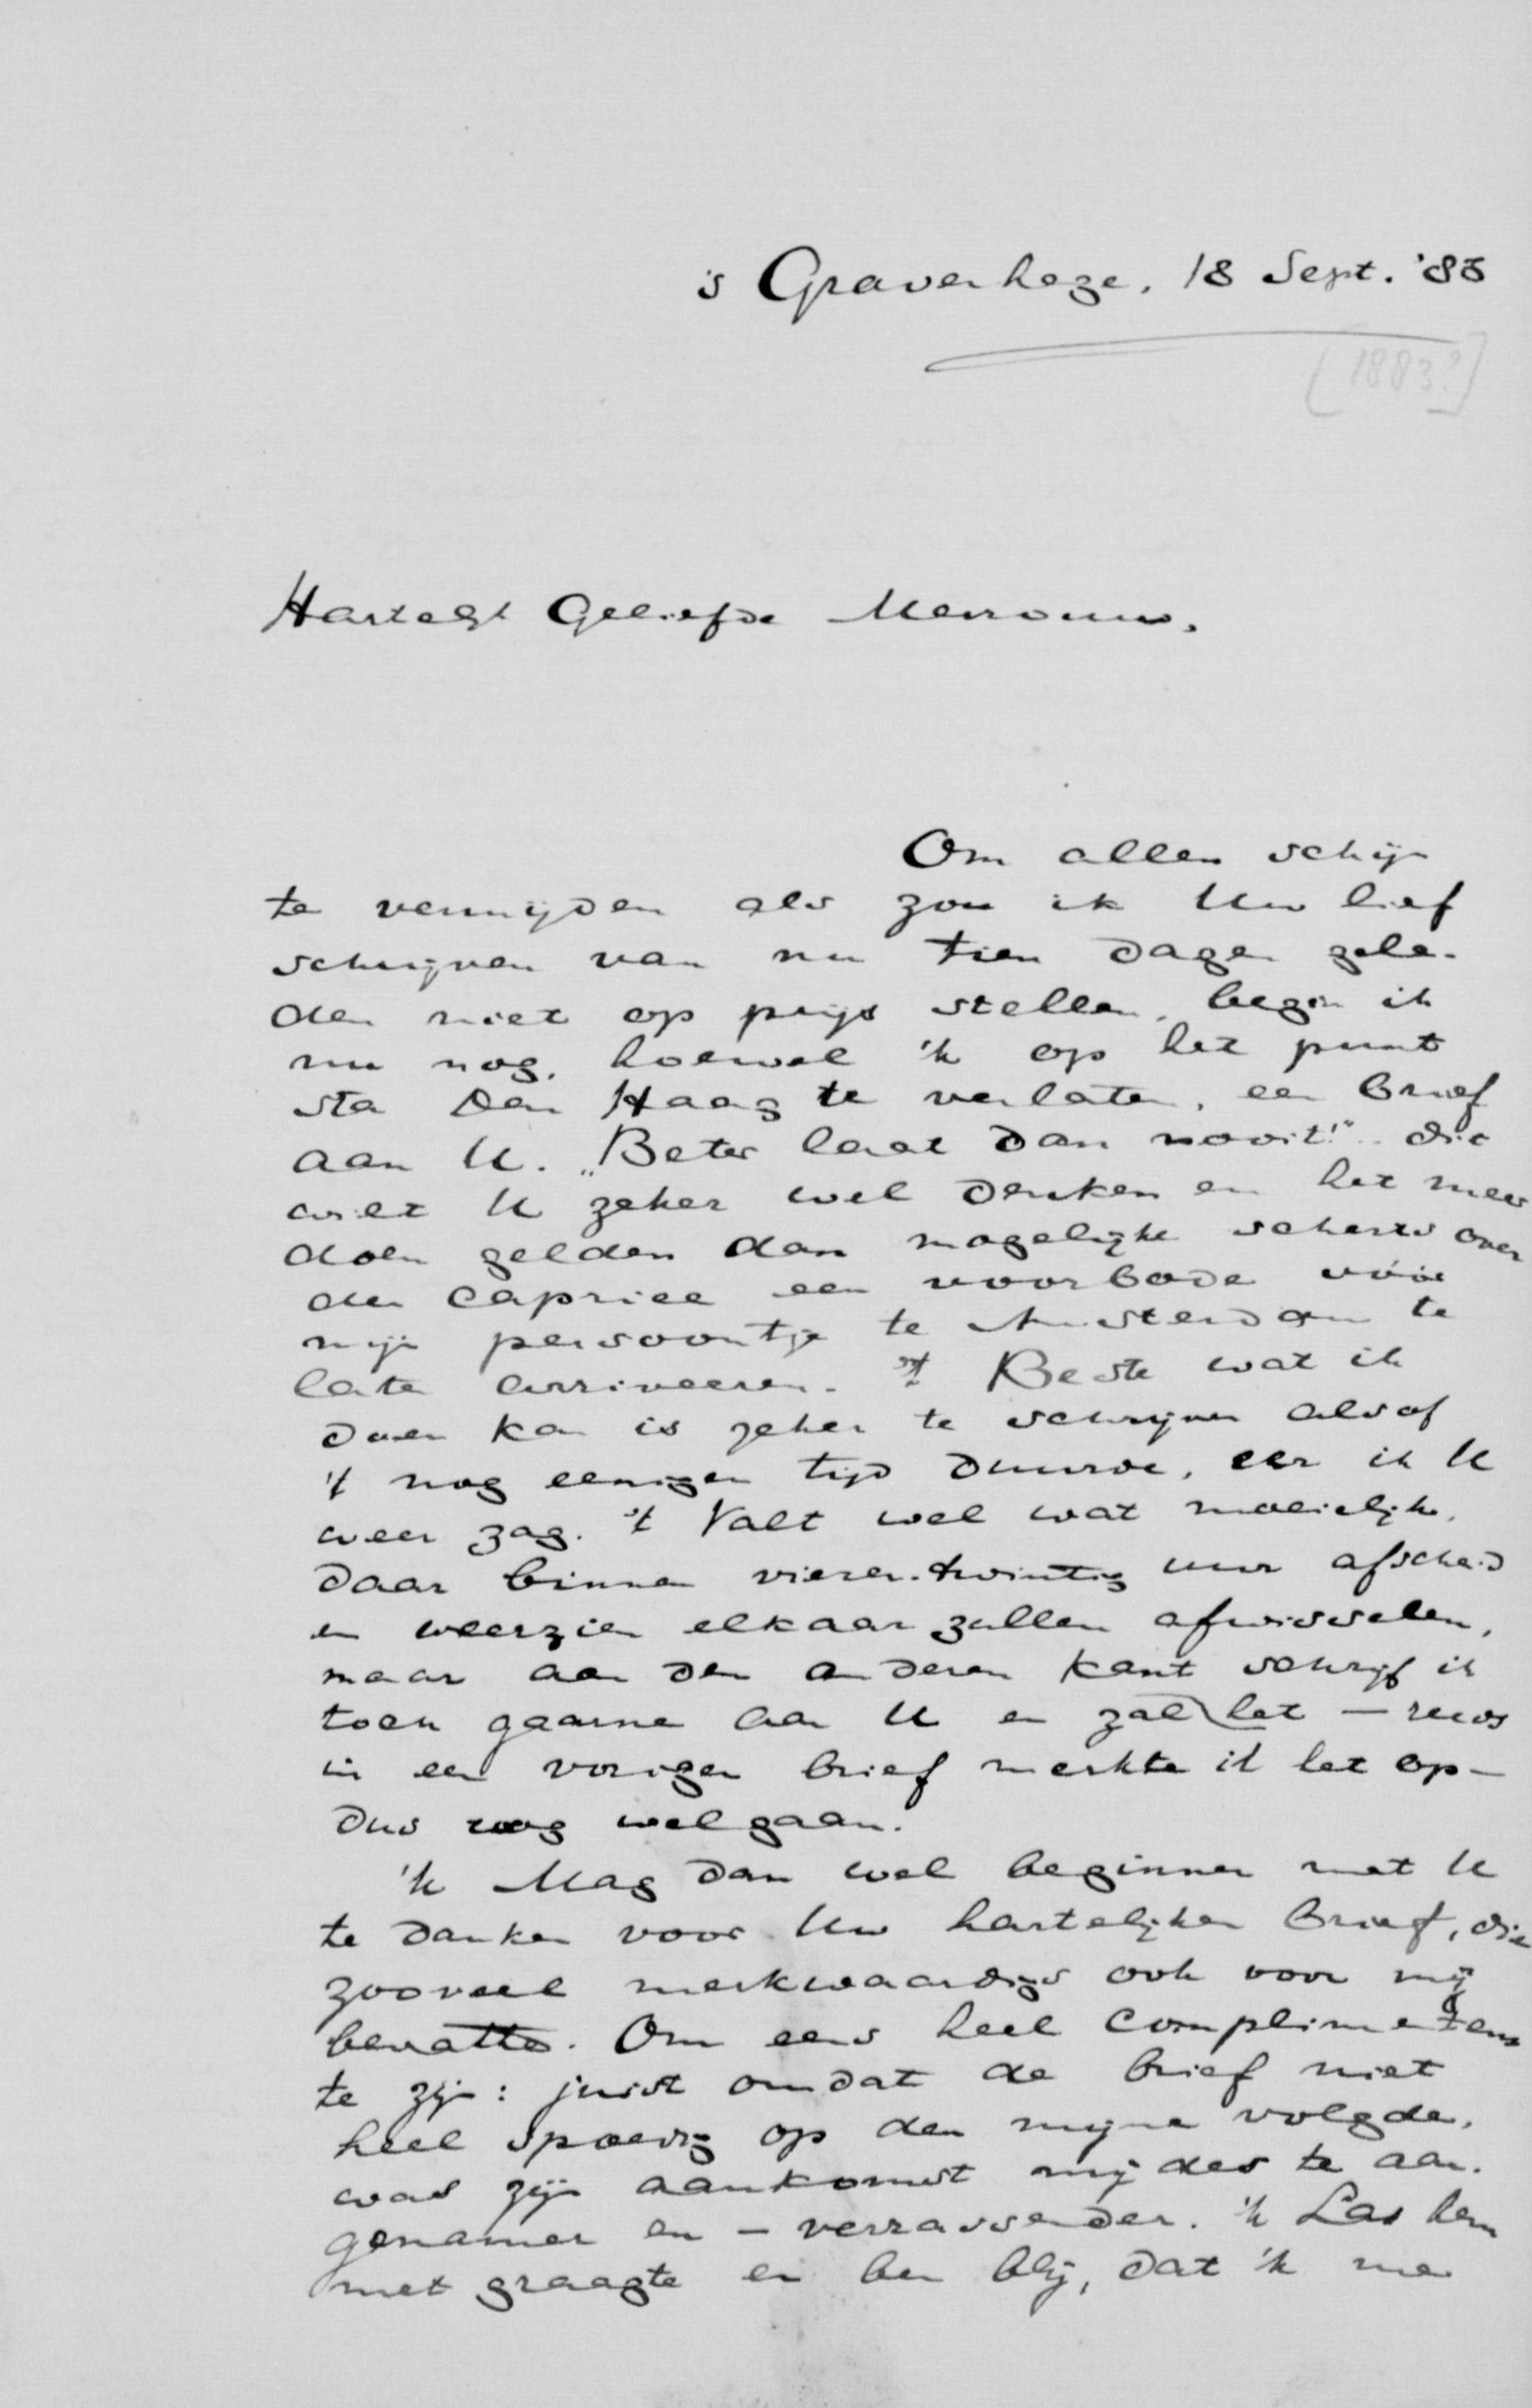 's Gravenhage, 18 Sept. '83
[1883?]
Hartelijk Geliefde Mevrouw,
Om allen schijn
te vermijden als zou ik Uw lief
schrijven van nu tien dagen gele-
den niet op prijs stellen, begin ik
nu nog, hoewel 'k op het punt
sta Den Haag te verlaten, een brief
aan U. „Beter laat dan nooit!" die
wilt U zeker wel denken en het meer
doen gelden dan mogelijke scherts over
den caprice een voorbode vóór
mijn persoontje te Amsterdam te
laten arriveeren. 't Beste wat ik
doen kan is zeker te schrijven alsof
't nog eenigen tijd duurde, eer ik U
weer zag. 't Valt wel wat moeielijk,
daar binnen vieren-twintig uur afscheid
en weerzien elkaar zullen afwisselen,
maar aan den anderen kant schrijf ik
toch gaarne aan U en zal het — reeds
in een vorigen brief merkte ik het op —
dus nog wel gaan.
'k Mag dan wel beginnen met U
te danken voor Uw hartelijken brief, die
zooveel merkwaardigs ook voor mij
bevatte. Om eens heel
te zijn: juist omdat de brief niet
heel spoedig op den mijne volgde,
was zijn aankomst mij des te aan-
genamer en — verrassender. 'k Las hem
met graagte en ben blij, dat 'k me